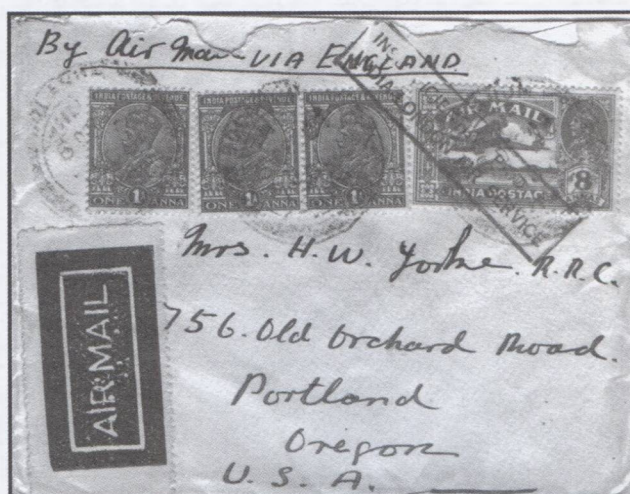 By Air Mail VIA ENGLAND
INDIA POSTAGE & REVENUE
1A
ONE ANNA
INDIA POSTAGE & REVENUE
1A
ONE ANNA
INDIA POSTAGE & REVENUE
1A
ONE ANNA
AIR MAIL
INDIA POSTAGE
8
Mrs. H. W. Yorke. R.R.C.
756. Old Orchard Road.
Portland
Oregon
U. S. A.
AIR MAIL